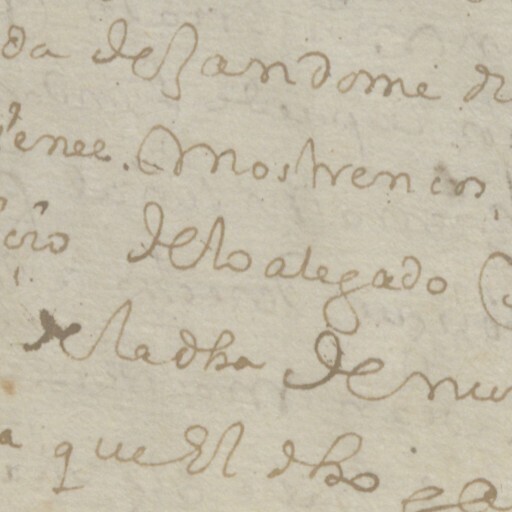 da dejandome de
tenee. Mostren en
cio de lo alegado
de la dha denu
a que El dho